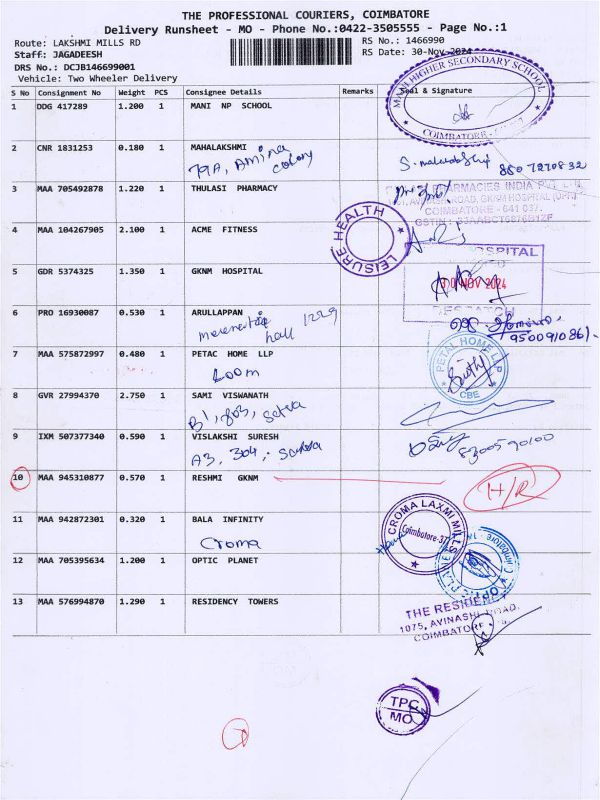 THE PROFESSIONAL COURIERS, COIMBATORE
Delivery Runsheet - MO - Phone No.:0422-3505555 - Page No.:1
Route: LAKSHMI MILLS RD
RS No.: 1466990
Staff: JAGADEESH
RS Date: 30-Nov-2024
DRS No.: DCJB146699001
Vehicle: Two Wheeler Delivery
S No Consignment No Weight PCS Consignee Details Remarks Seal & Signature
1 DDG 417289 1.200 1 MANI NP SCHOOL
MANI HIGHER SECONDARY SCHOOL
COIMBATORE
2 CNR 1831253 0.180 1 MAHALAKSHMI
79A, Amina
colony
3 MAA 705492878 1.220 1 THULASI PHARMACY
PHARMACIES INDIA PVT
AVINASHI ROAD, GKNM HOSPITAL (OPP)
COIMBATORE - 641 037.
4 MAA 104267905 2.100 1 ACME FITNESS
LEISURE HEALTH
5 GDR 5374325 1.350 1 GKNM HOSPITAL
HOSPITAL
30 NOV 2024
DESPATCH
6 PRO 16930087 0.530 1 ARULLAPPAN
hall 1229
9500910861
7 MAA 575872997 0.480 1 PETAC HOME LLP
Loom
PETAL HOME LLP
CBE
8 GVR 27994370 2.750 1 SAMI VISWANATH
9 IXM 507377340 0.590 1 VISLAKSHI SURESH
A3, 304,
10 MAA 945310877 0.570 1 RESHMI GKNM
H/R
11 MAA 942872301 0.320 1 BALA INFINITY
Croma
CROMA LAXMI MILLS
Coimbatore-37
12 MAA 705395634 1.200 1 OPTIC PLANET
13 MAA 576994870 1.290 1 RESIDENCY TOWERS
THE RESIDENCY
1075, AVINASHI ROAD,
COIMBATORE
TPC
MO